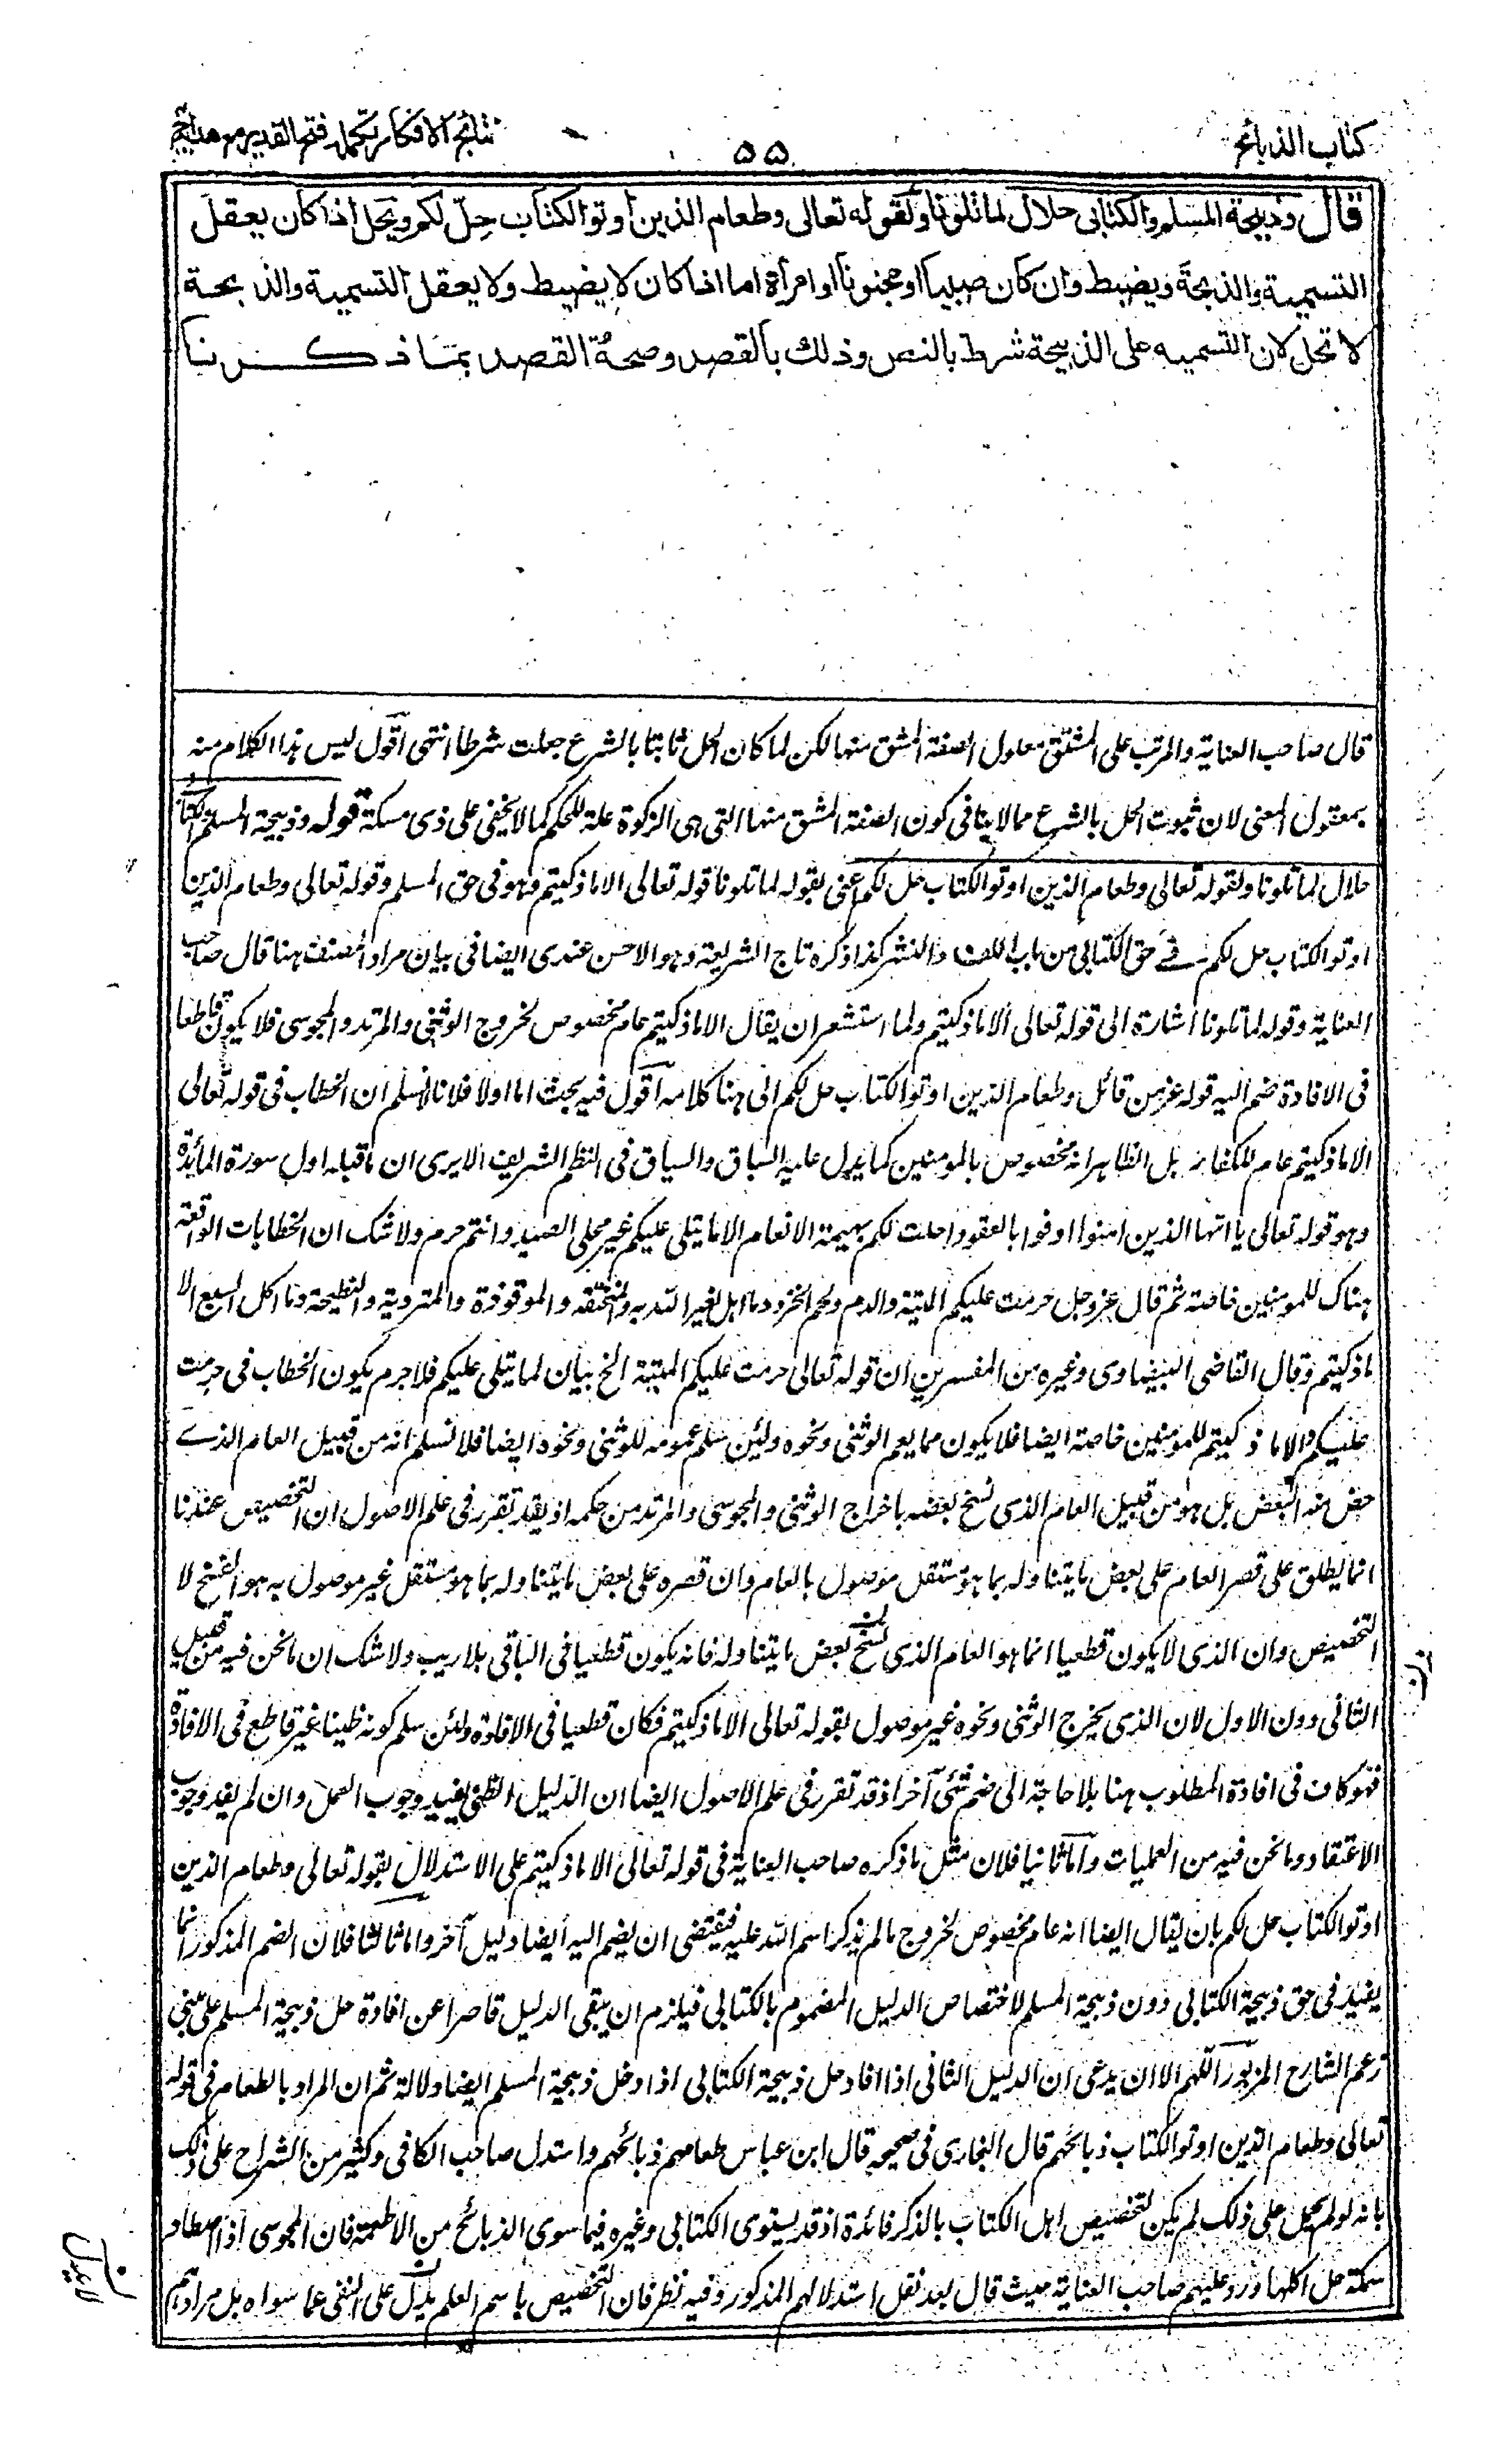 كتاب الذبائح
۵۵
نتائج الافكار تكملہ فتح القدير مع هدايہ
قال وذبيحة المسلم والكتابى حلال لما تلونا ولقوله تعالى وطعام الذين اوتوا الكتاب حِلّ لكم ويحل اذا كان يعقل
التسمية والذبحة ويضبط وان كان صبيا او مجنونا او امرأة اما اذا كان لا يضبط ولا يعقل التسمية والذبحة
لا تحل لان التسميه على الذبيحة شرط بالنص وذلك بالقصد وصحة القصد بما ذكرنا
قال صاحب العناية والمرتب على المشتق معلول الصفة المشتق منها لكن لما كان الحل ثابتا بالشرع جعلت شرطا انتهى اقول ليس هذا الكلام منه
بمعقول المعنى لان ثبوت الحل بالشرع مما لا ينافى كون الصفة المشتق منها التى هى الزكوة علة للحكم كما لا يخفى على ذى مسكة قوله وذبيحة المسلم والكتابى
حلال لما تلونا ولقوله تعالى وطعام الذين اوتوا الكتاب حل لكم اعنى بقوله لما تلونا قوله تعالى الا ما ذكيتم وهو فى حق المسلم وقوله تعالى وطعام الذين
اوتوا الكتاب حل لكم فے حق الكتابى من باب اللف والنشر كذا ذكره تاج الشريعة وهو الاحسن عندى ايضا فى بيان مراد المصنف هنا قال صاحب
العناية وقوله لما تلونا اشارة الى قوله تعالى الا ما ذكيتم ولما استشعر ان يقال الا ما ذكيتم عام مخصوص لخروج الوثنى والمرتد والمجوسى فلا يكون قاطعا
فى الافادة ضم اليه قوله عز من قائل وطعام الذين اوتوا الكتاب حل لكم الى هنا كلامه اقول فيه بحث اما اولا فلانا لا نسلم ان الخطاب فى قوله تعالى
الا ما ذكيتم عام للكفار بل الظاهر انه مخصوص بالمومنين كما يدل عليه السباق والسياق فى النظم الشريف الا يرى ان ما قبله اول سورة المائدة
وهو قوله تعالى يا ايها الذين امنوا اوفوا بالعقود احلت لكم بهيمة الانعام الا ما يتلى عليكم غير محلى الصيد وانتم حرم ولا شك ان الخطابات الواقعة
هناك للمومنين خاصة ثم قال عز وجل حرمت عليكم الميتة والدم ولحم الخنزير وما اهل لغير الله به والمنخنقه والموقوذة والمتردية والنطيحة وما اكل السبع الا
ما ذكيتم وقال القاضى البيضاوى وغيره من المفسرين ان قوله تعالى حرمت عليكم الميتة الخ بيان لما يتلى عليكم فلا جرم يكون الخطاب فى حرمت
عليكم والا ما ذكيتم للمؤمنين خاصة ايضا فلا يكون مما يعم الوثنى ونحوه ولئن سلم عمومه للوثنى ونحوه ايضا فلا نسلم انه من قبيل العام الذے
خص منه البعض بل هو من قبيل العام الذى نسخ بعضه باخراج الوثنى والمجوسى والمرتد من حكمه اذ قد تقرر فى علم الاصول ان التخصيص عندنا
انما يطلق على قصر العام على بعض ما يتناوله بما هو مستقل موصول بالعام وان قصره على بعض ما يتناوله بما هو مستقل غير موصول به هو النسخ لا
التخصيص وان الذى لا يكون قطعيا انما هو العام الذى نسخ بعض ما يتناوله فانه يكون قطعيا فى الباقى بلا ريب ولا شك ان ما نحن فيه من قبيل
الثانى دون الاول لان الذى يخرج الوثنى ونحوه غير موصول بقوله تعالى الا ما ذكيتم فكان قطعيا فى الافادة ولئن سلم كونه ظنيا غير قاطع فى الافادة
فهو كاف فى افادة المطلوب هنا بلا حاجة الى ضم شئ آخر اذ قد تقرر فى علم الاصول ايضا ان الدليل الظنى يفيد وجوب العمل وان لم يفد وجوب
الاعتقاد وما نحن فيه من العمليات واما ثانيا فلان مثل ما ذكره صاحب العناية فى قوله تعالى الا ما ذكيتم على الاستدلال بقوله تعالى وطعام الذين
اوتوا الكتاب حل لكم بان يقال ايضا انه عام مخصوص لخروج ما لم يذكر اسم الله عليه فيقتضى ان يضم اليه ايضا دليل آخر واما ثالثا فلان الضم المذكور انما
يفيد فى حق ذبيحة الكتابى دون ذبيحة المسلم لاختصاص الدليل المضموم بالكتابى فيلزم ان يبقى الدليل قاصرا عن افادة حل ذبيحة المسلم على مبنى
زعم الشارح المزبور اللهم الا ان يدعى ان الدليل الثانى اذا افاد حل ذبيحة الكتابى اذا دخل ذبيحة المسلم ايضا دلالة ثم ان المراد بالطعام فى قوله
تعالى وطعام الذين اوتوا الكتاب ذبائحهم قال البخارى فى صحيحه قال ابن عباس طعامهم ذبائحهم واستدل صاحب الكافى وكثير من الشراح على ذلك
بانه لو لم يحمل على ذلك لم يكن لتخصيص اهل الكتاب بالذكر فائدة اذ قد يستوى الكتابى وغيره فيما سوى الذبائح من الاطعمة فان المجوسى اذا اصطاد
سمكة حل اكلها ورد عليهم صاحب العناية حيث قال بعد نقل استدلالهم المذكور وفيه نظر فان التخصيص باسم العلم يدل على النفى عما سواه بل مرادهم
لا يدل